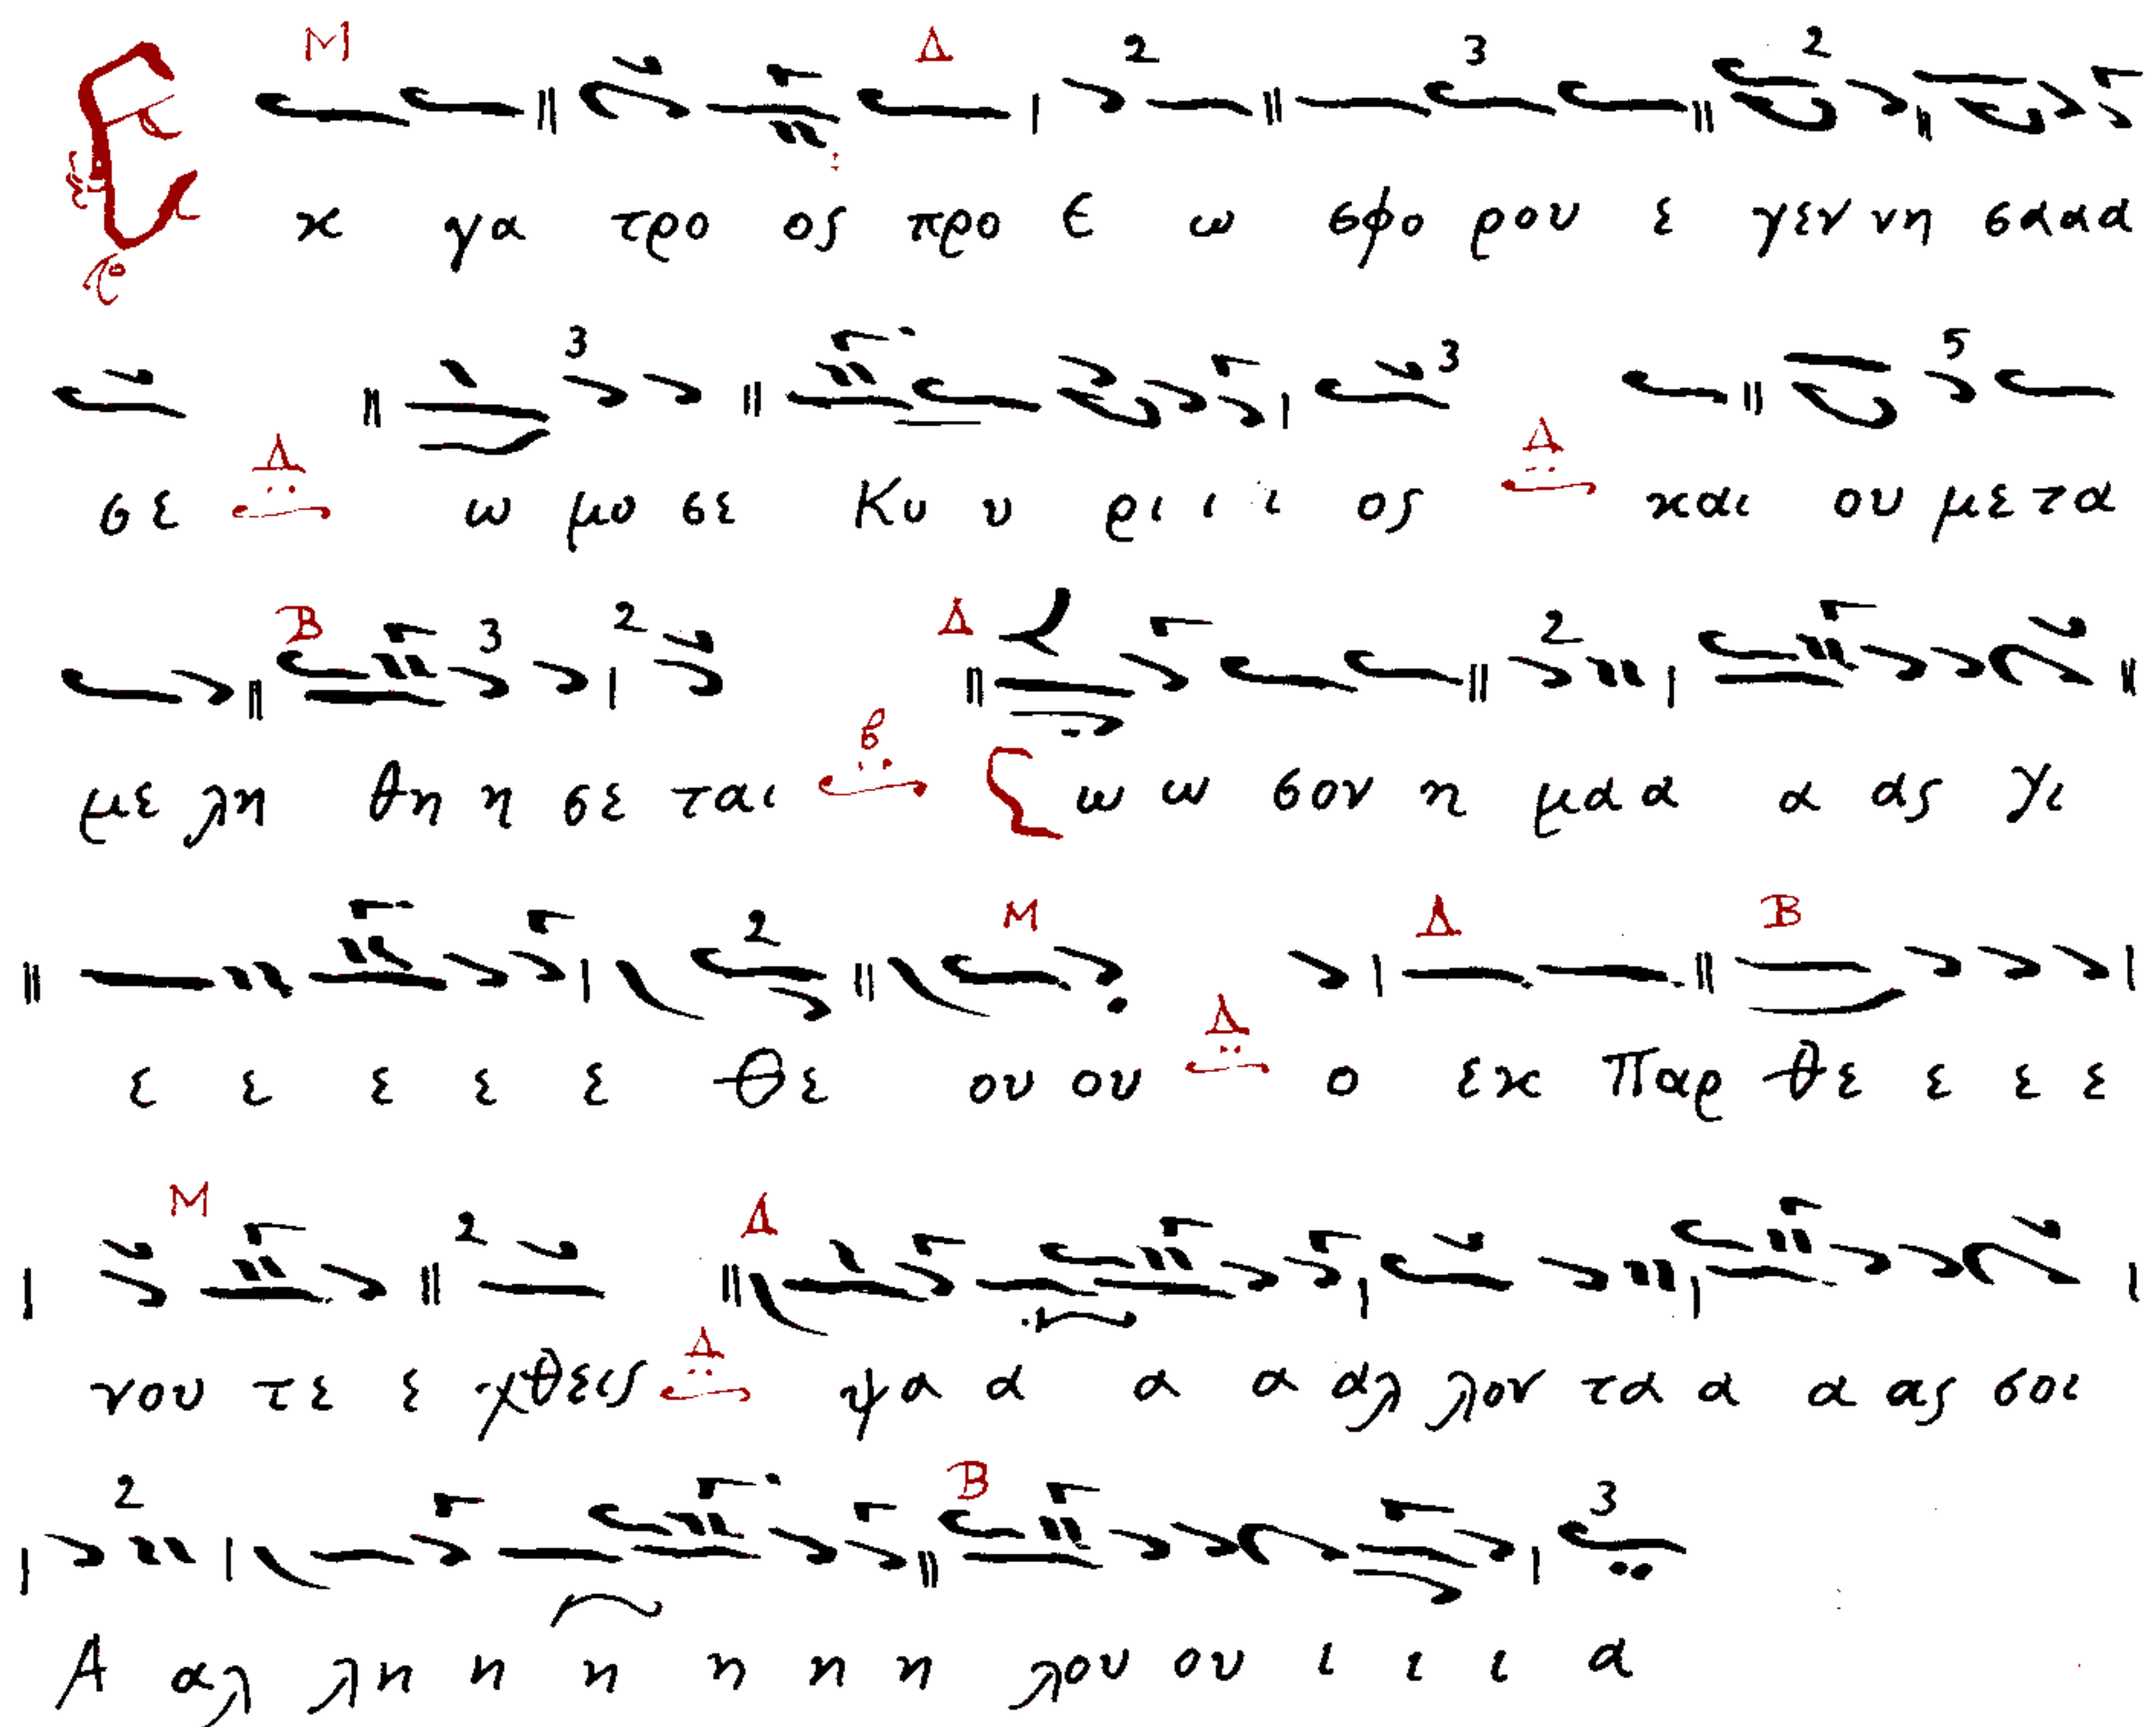 Εκ γα τρο ος προ ε ω σφο ρου ε γεν νη σα α α
σε ω μο σε Κυ υ ρι ι ι ος και ου με τα
με λη θη η σε ται Σ ω ω σον η μα α α ας Υι
ε ε ε ε ε Θε ου ου ο εκ Παρ θε ε ε ε
νου τε ε χθεις ψα α α α α αλ λον τα α α ας σοι
Α αλ λη η η η η η λου ου ι ι ι α